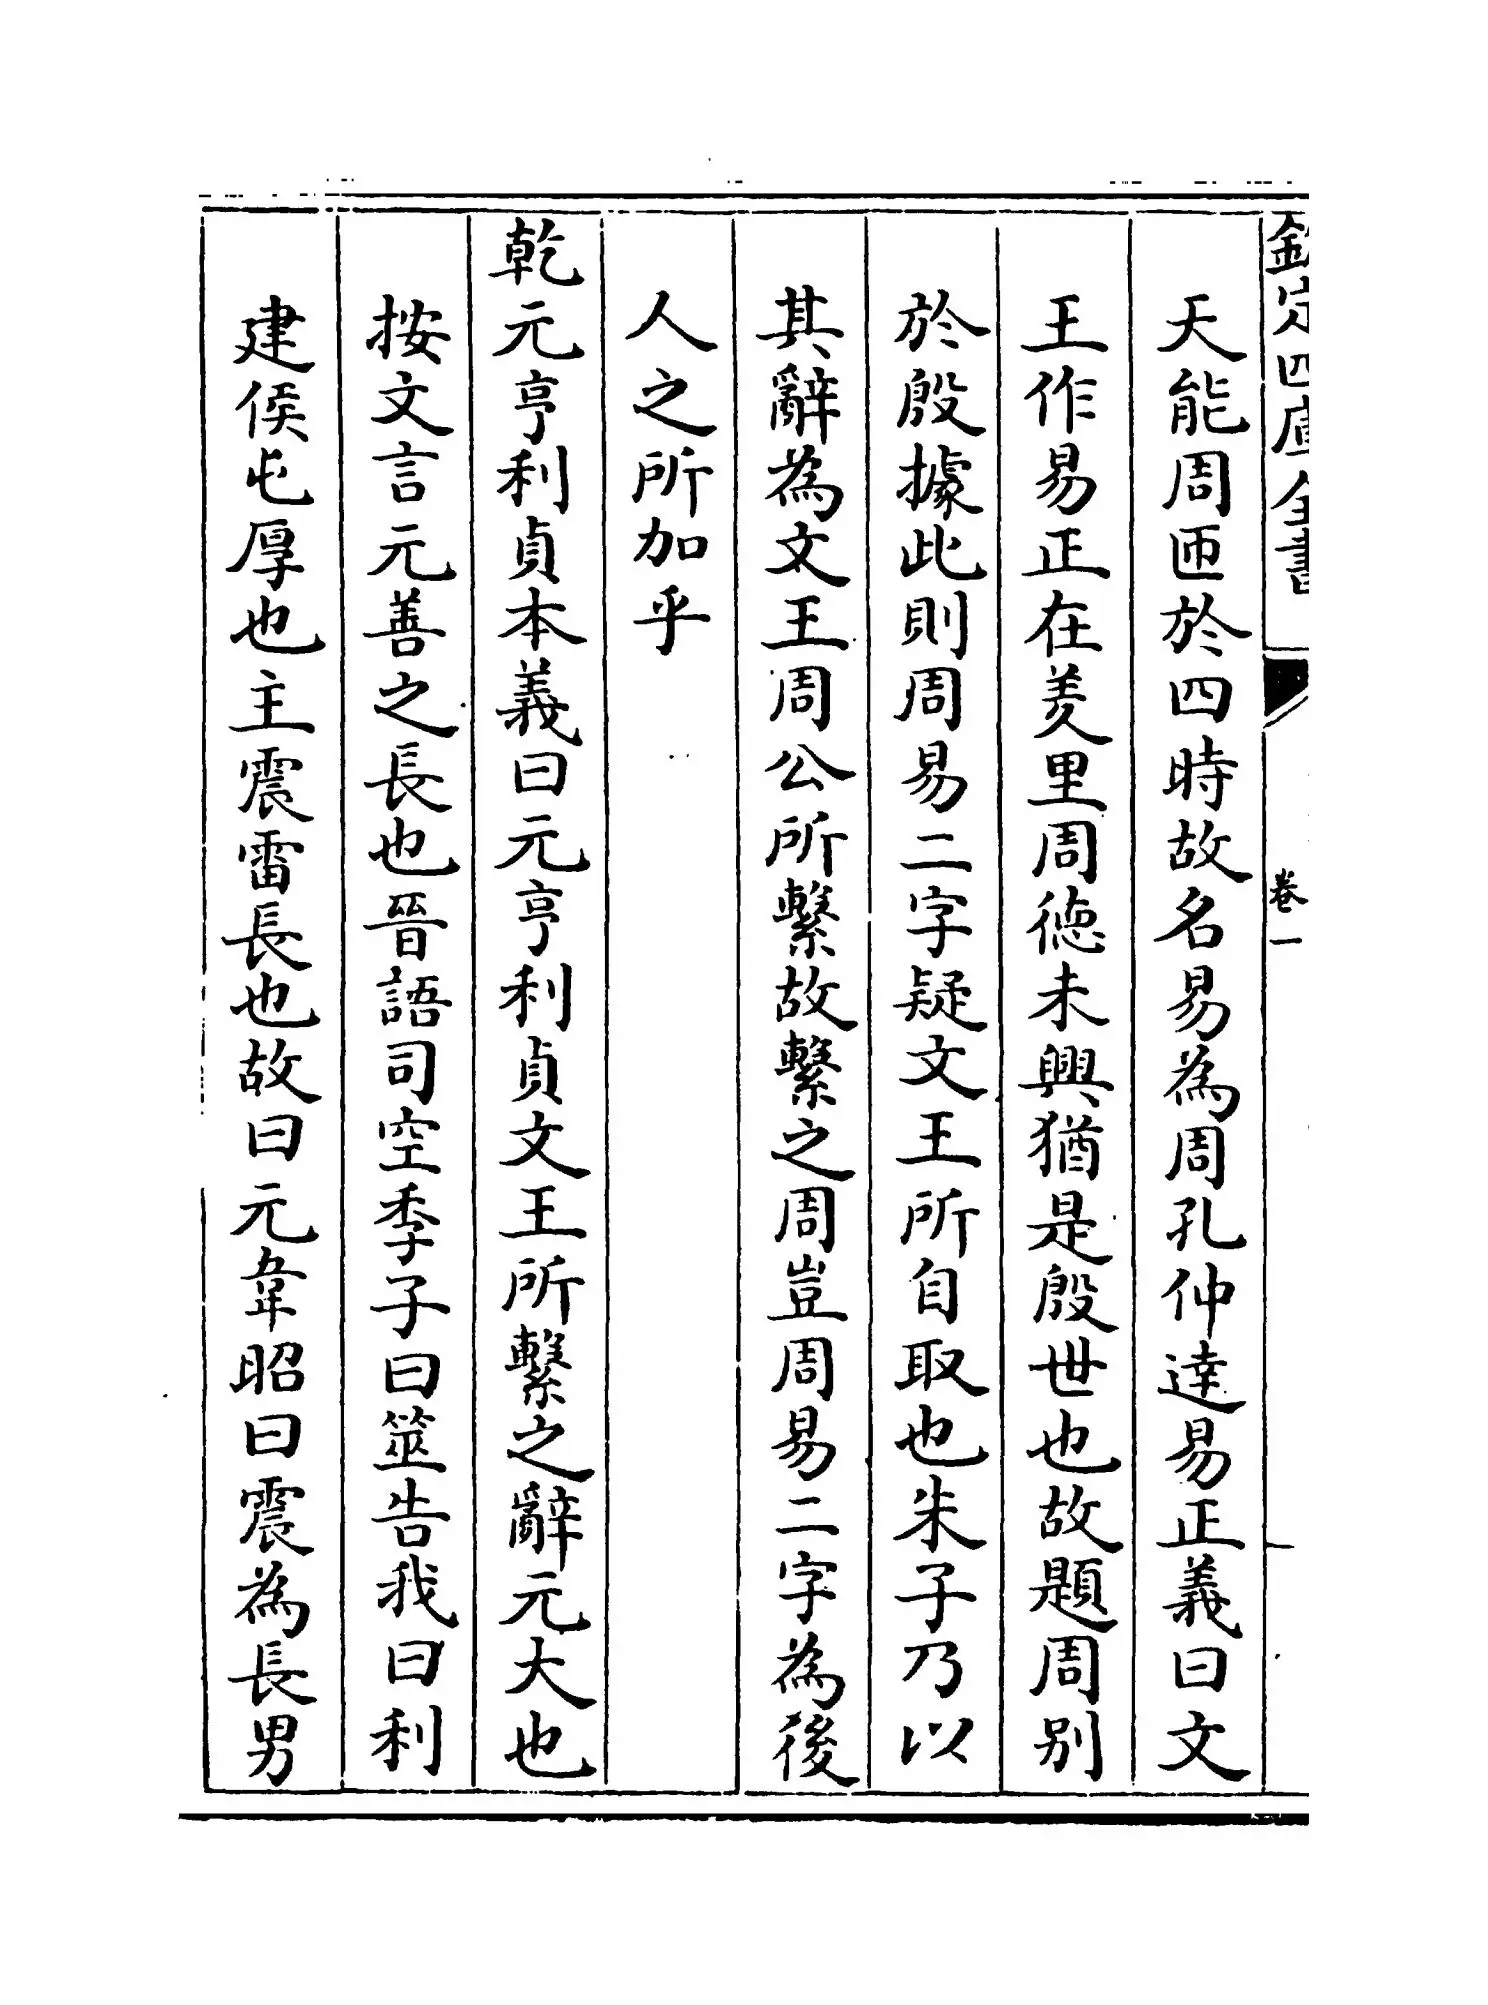 欽定四庫全書
卷一
天能周匝於四時故名易為周孔仲達易正義曰文
王作易正在羑里周德未興猶是殷世也故題周别
於殷據此則周易二字疑文王所自取也朱子乃以
其辭為文王周公所繫故繫之周豈周易二字為後
人之所加乎
乾元亨利貞本義曰元亨利貞文王所繫之辭元大也
按文言元善之長也晉語司空季子曰筮告我曰利
建侯屯厚也主震雷長也故曰元韋昭曰震為長男